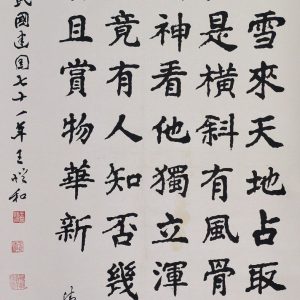 雪來天地占取
是橫斜有風骨
神看他獨立渾
竟有人知否幾
且賞物華新
民國建國七十一年